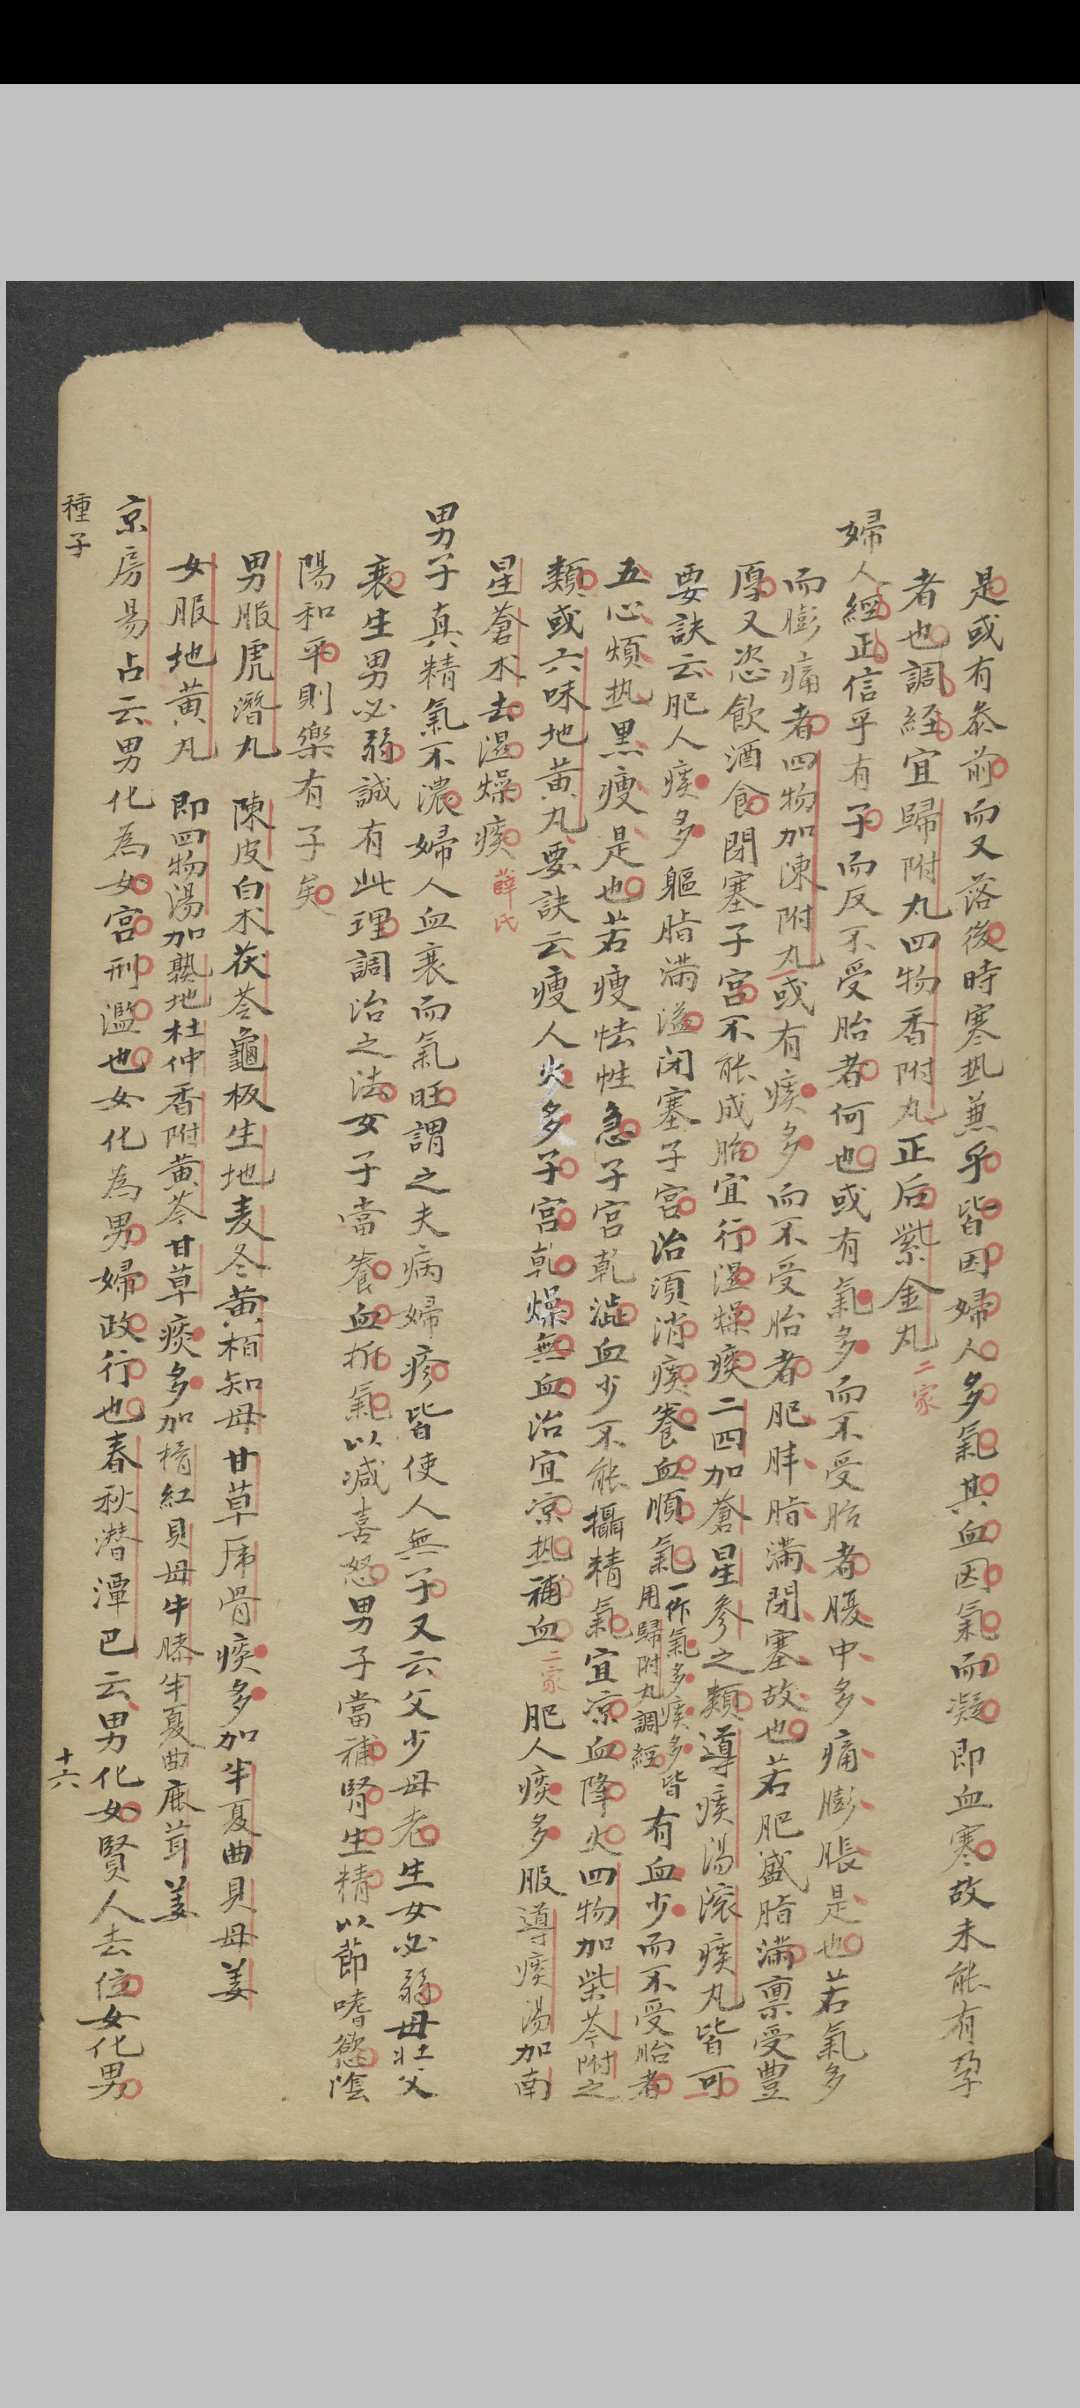 是或有叅前而又落後時寒热兼乎皆因婦人多氣其血因氣而凝即血寒故未能有孕
者也調經宜歸附丸四物香附丸正后紫金丸二家
婦人經正信乎有子而反不受胎者何也或有氣多而不受胎者腹中多痛膨脹是也若氣多
而膨痛者四物加陳附丸或有痰多而不受胎者肥胖脂滿閉塞故也若肥盛脂滿禀受豐
厚又恣飲酒食閉塞子宮不能成胎宜行湿燥痰二四加蒼星參之類導痰湯滚痰丸皆可
要訣云肥人痰多軀脂滿溢闭塞子宮治須消痰養血順氣一作氣多痰多皆用歸附丸調經有血少而不受胎者
五心煩热黒瘦是也若瘦怯性急子宮乾澁血少不能攝精氣宜凉血降火四物加柴芩附之
類或六味地黄丸要訣云瘦人火多子宮乾燥無血治宜凉热補血二家肥人痰多服導痰湯加南
星蒼术去湿燥痰薛氏
男子真精氣不濃婦人血衰而氣旺謂之夫病婦疹皆使人無子又云父少母老生女必弱母壯父
衰生男必弱誠有此理調治之法女子當養血抑氣以减喜怒男子當補腎生精以節嗜慾陰
陽和平則樂有子矣
男服虎潛丸 陳皮白术茯苓龜板生地麦冬黄栢知母甘草虎骨痰多加半夏曲貝母姜
女服地黄丸 即四物湯加熟地杜仲香附黄芩甘草痰多加橘紅貝母牛膝半夏曲鹿茸姜
京房易占云男化為女宮刑濫也女化為男婦政行也春秋潜潭巴云男化女賢人去位女化男
種子
十六